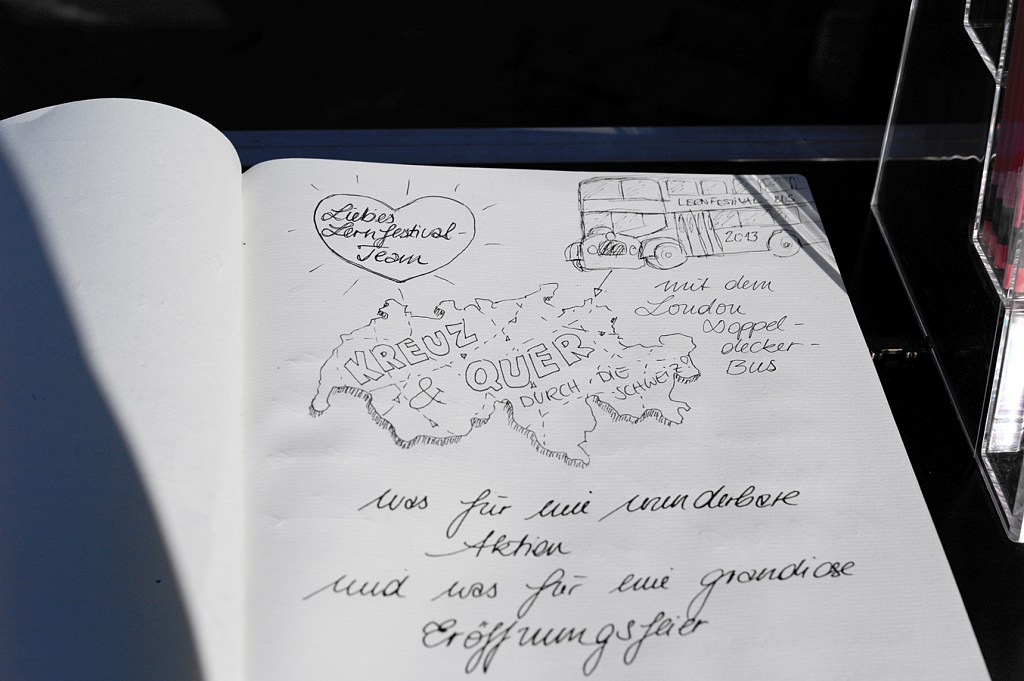 Liebes
Lernfestival-
Team
LERNFESTIVAL BUS
2013
mit dem
London
Doppel-
decker-
Bus
KREUZ
& QUER
DURCH DIE
SCHWEIZ
was für eine wunderbare
Aktion
und was für eine grandiose
Eröffnungsfeier